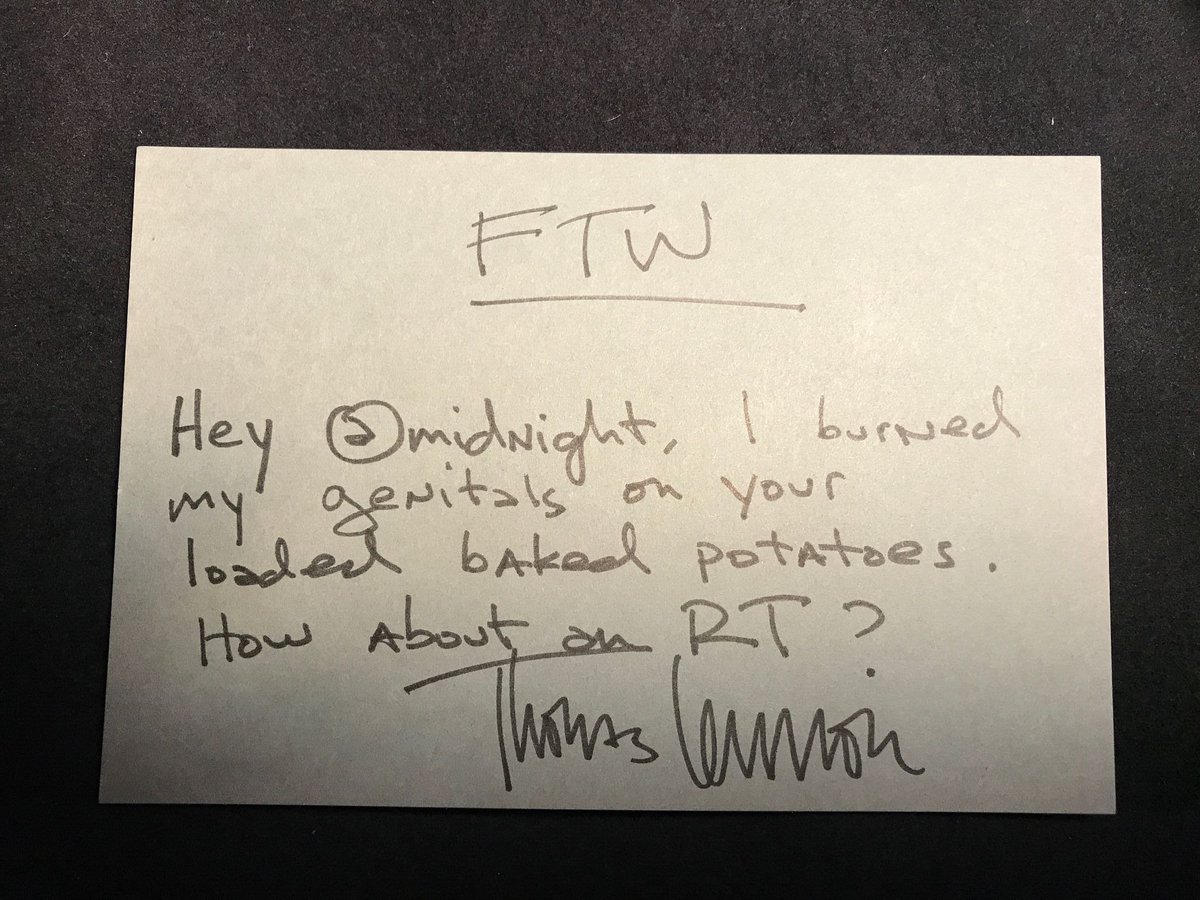 FTW
Hey @midnight, I burned
my genitals on your
loaded baked potatoes.
How about an RT?
Thomas Lennon